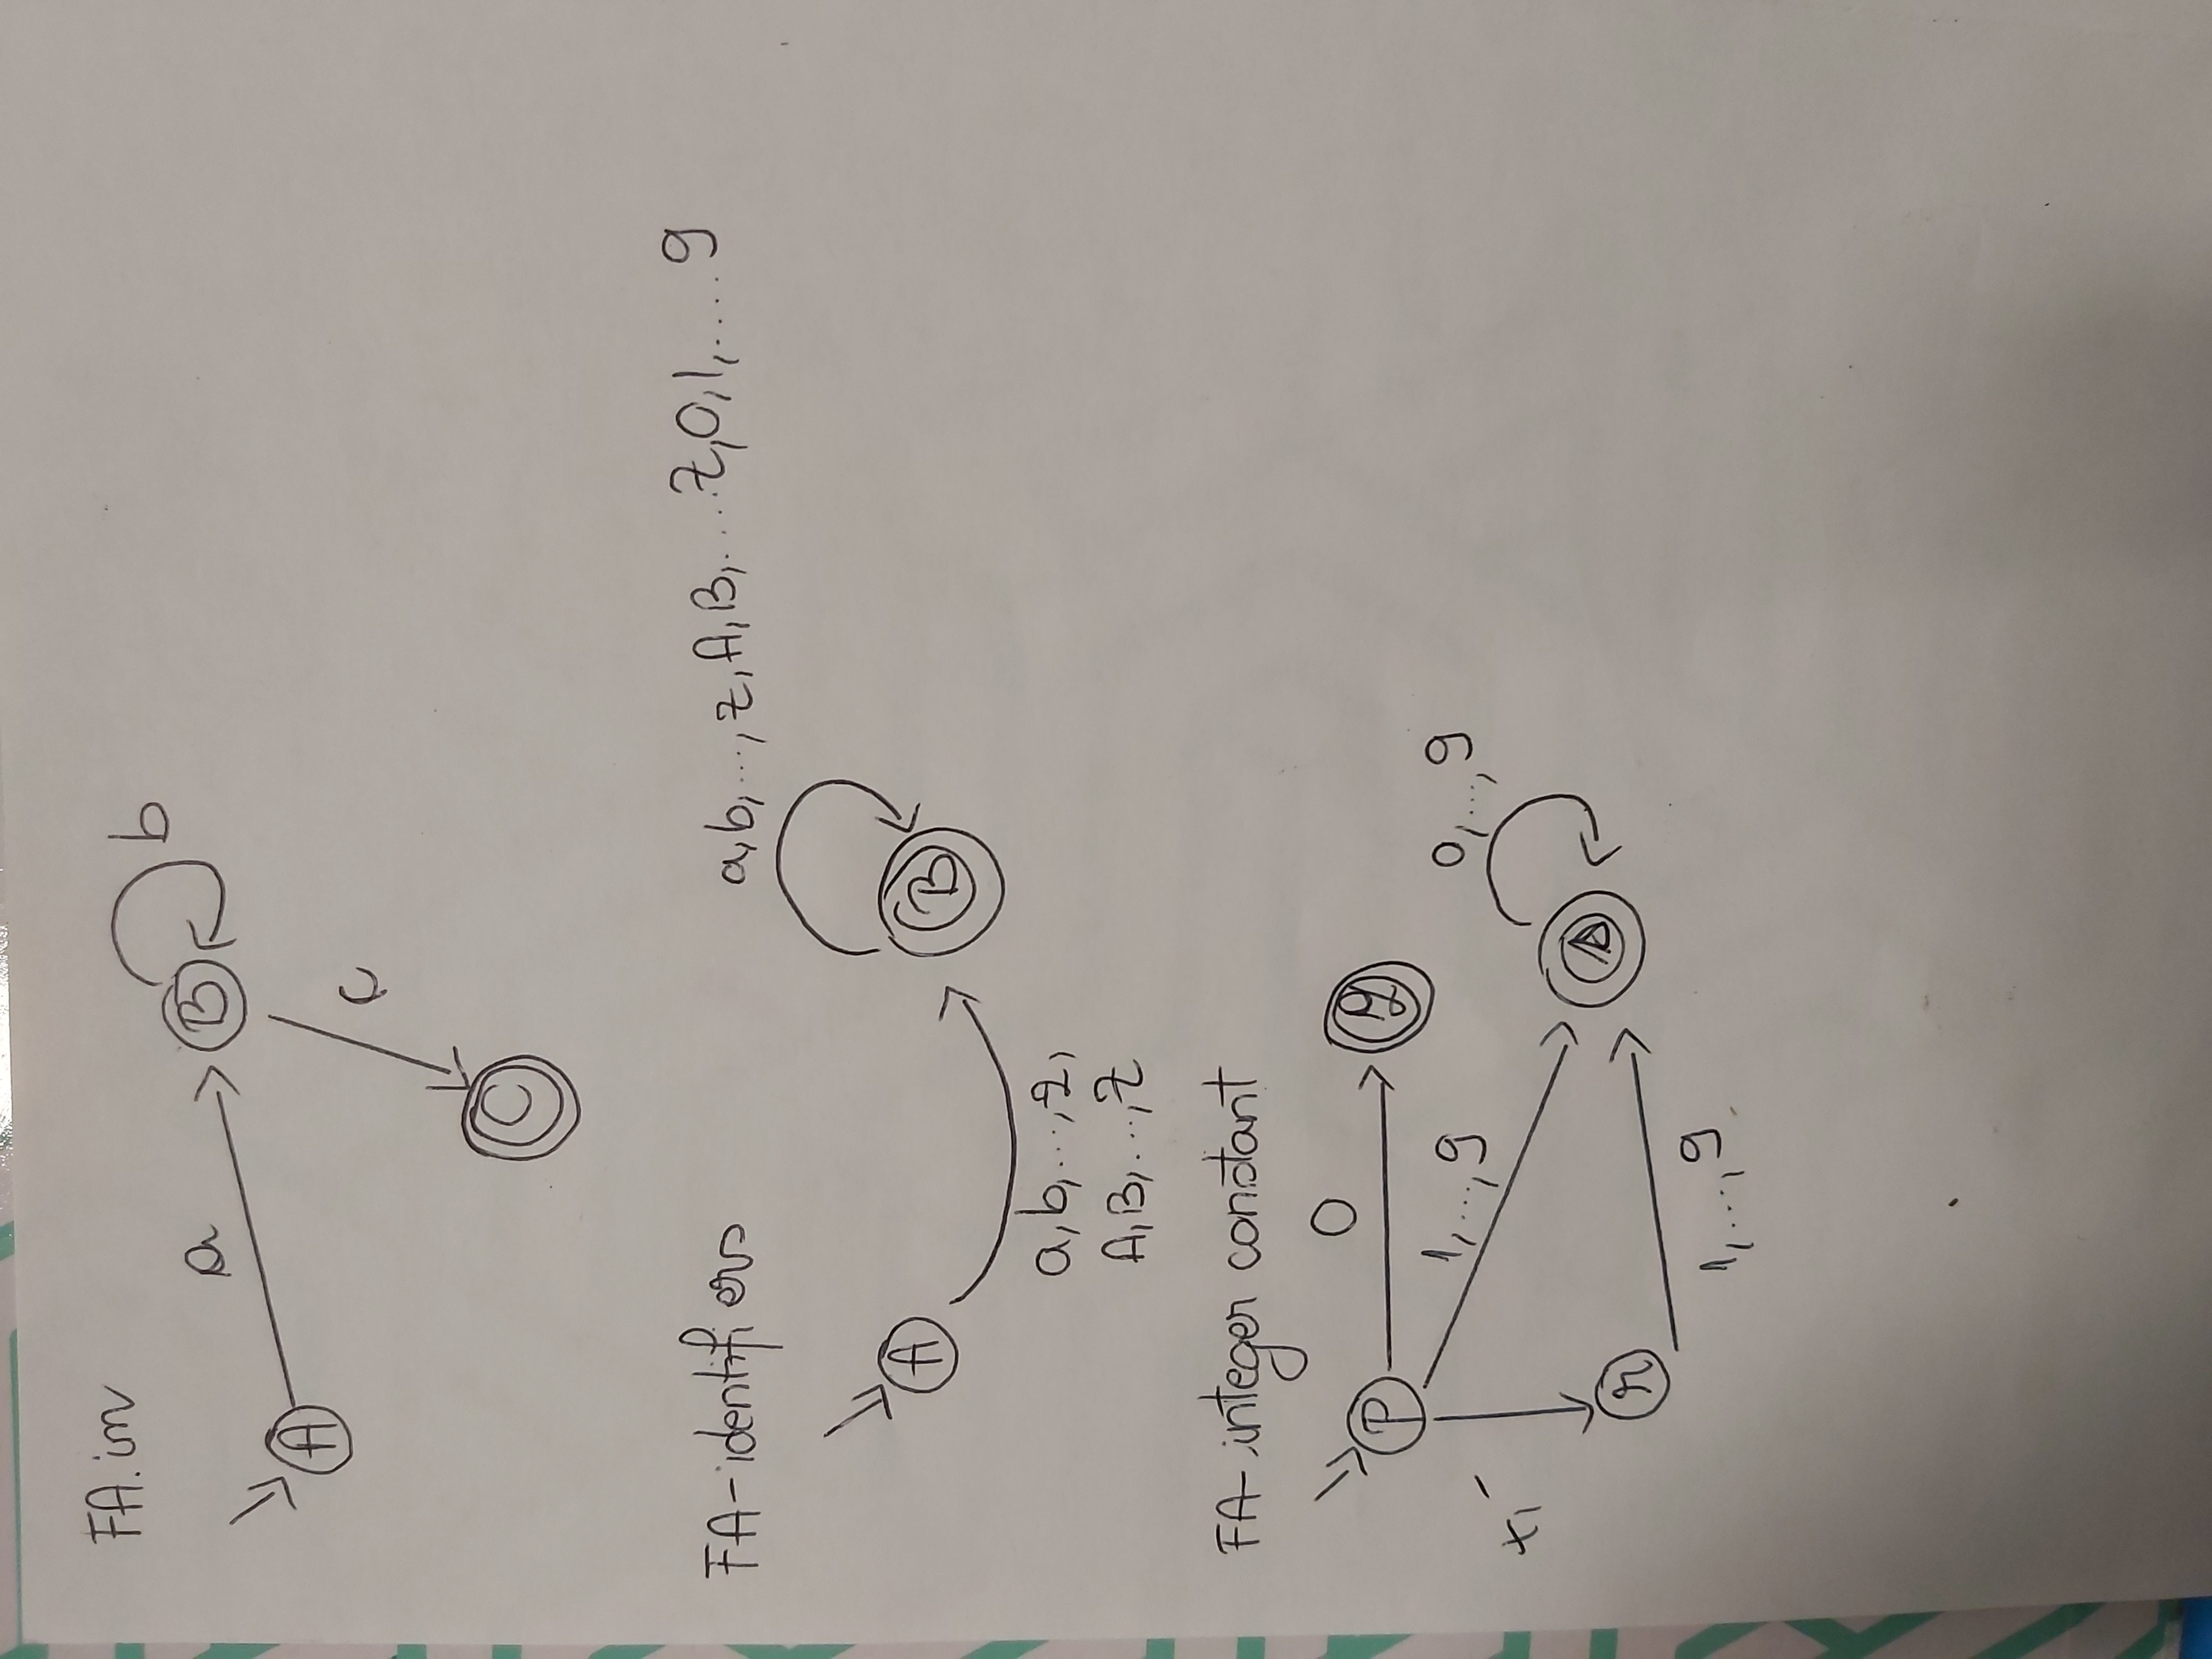 FA.in
a
b
B
A
c
C
FA-identifiers
a,b,...,z,A,B,....Z,0,1,....9
A
B
a,b,...,z,
A,B,...,Z
FA-integer constant
0
P
q
1,...,9
0,...,9
+,-
r
1,...,9